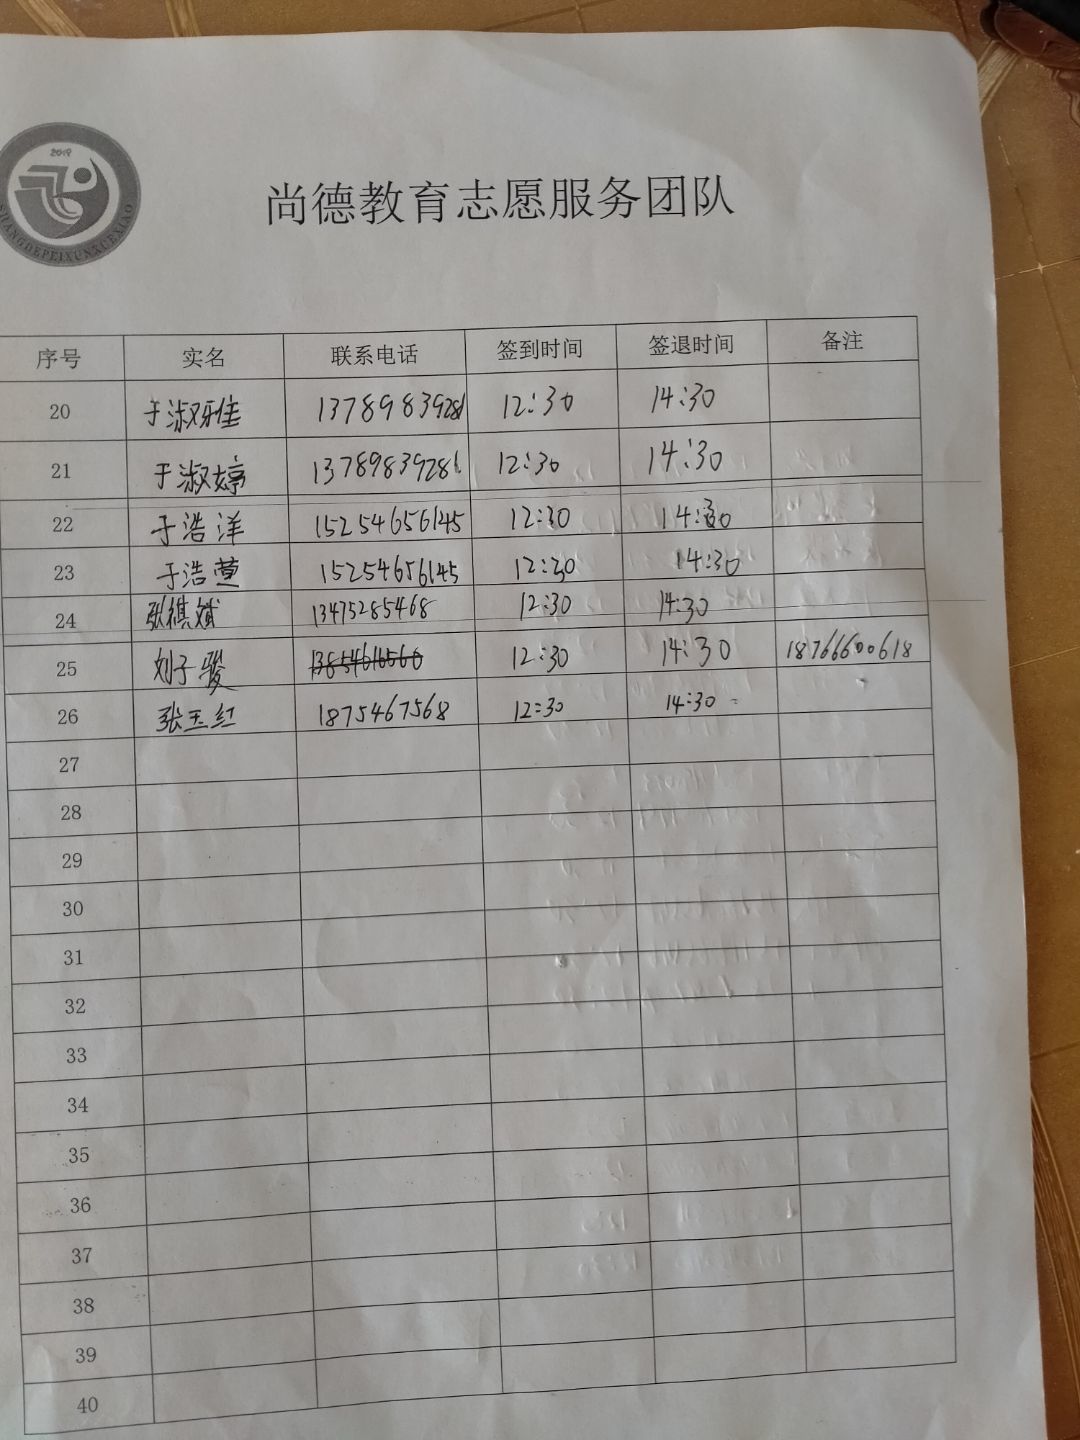 2019
SHANGDEPEIXUNXUEXIAO
尚德教育志愿服务团队
序号 实名 联系电话 签到时间 签退时间 备注
20 于淑雅 13789839281 12:30 14:30
21 于淑婷 13789839281 12:30 14:30
22 于浩洋 15254656145 12:30 14:30
23 于浩萱 15254656145 12:30 14:30
24 张祺斌 13475285468 12:30 14:30
25 刘子骏 12:30 14:30 18766600618
26 张玉红 1875467568 12:30 14:30
27
28
29
30
31
32
33
34
35
36
37
38
39
40